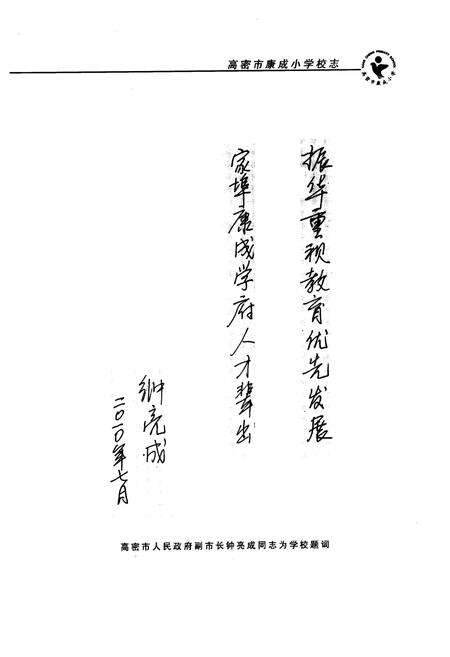 高密市康成小学校志
振华重视教育优先发展
家埠康成学府人才辈出
钟亮成
二〇一〇年七月
高密市人民政府副市长钟亮成同志为学校题词